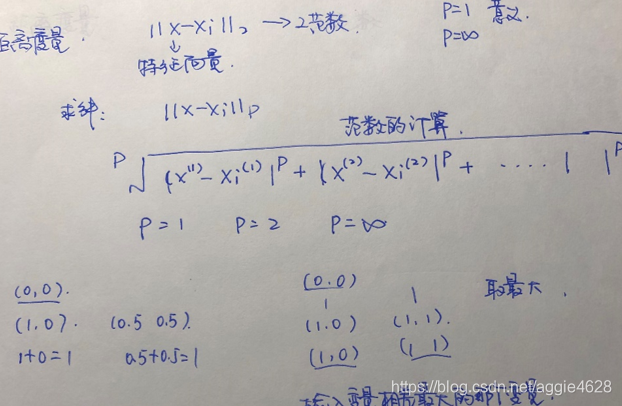 距离度量. ||x-xi||₂ → 2范数. P=1 意义.
P=∞
特征向量.
求解: ||x-xi||p
范数的计算.
P√ |x⁽¹⁾-xi⁽¹⁾|ᴾ + |x⁽²⁾-xi⁽²⁾|ᴾ + ···· | |ᴾ
P=1 P=2 P=∞
(0,0). (0.0) 取最大.
1 1
(1.0). (0.5 0.5). (1.0) (1,1).
1+0=1 0.5+0.5=1 (1,0) (1 1)
https://blog.csdn.net/aggie4628